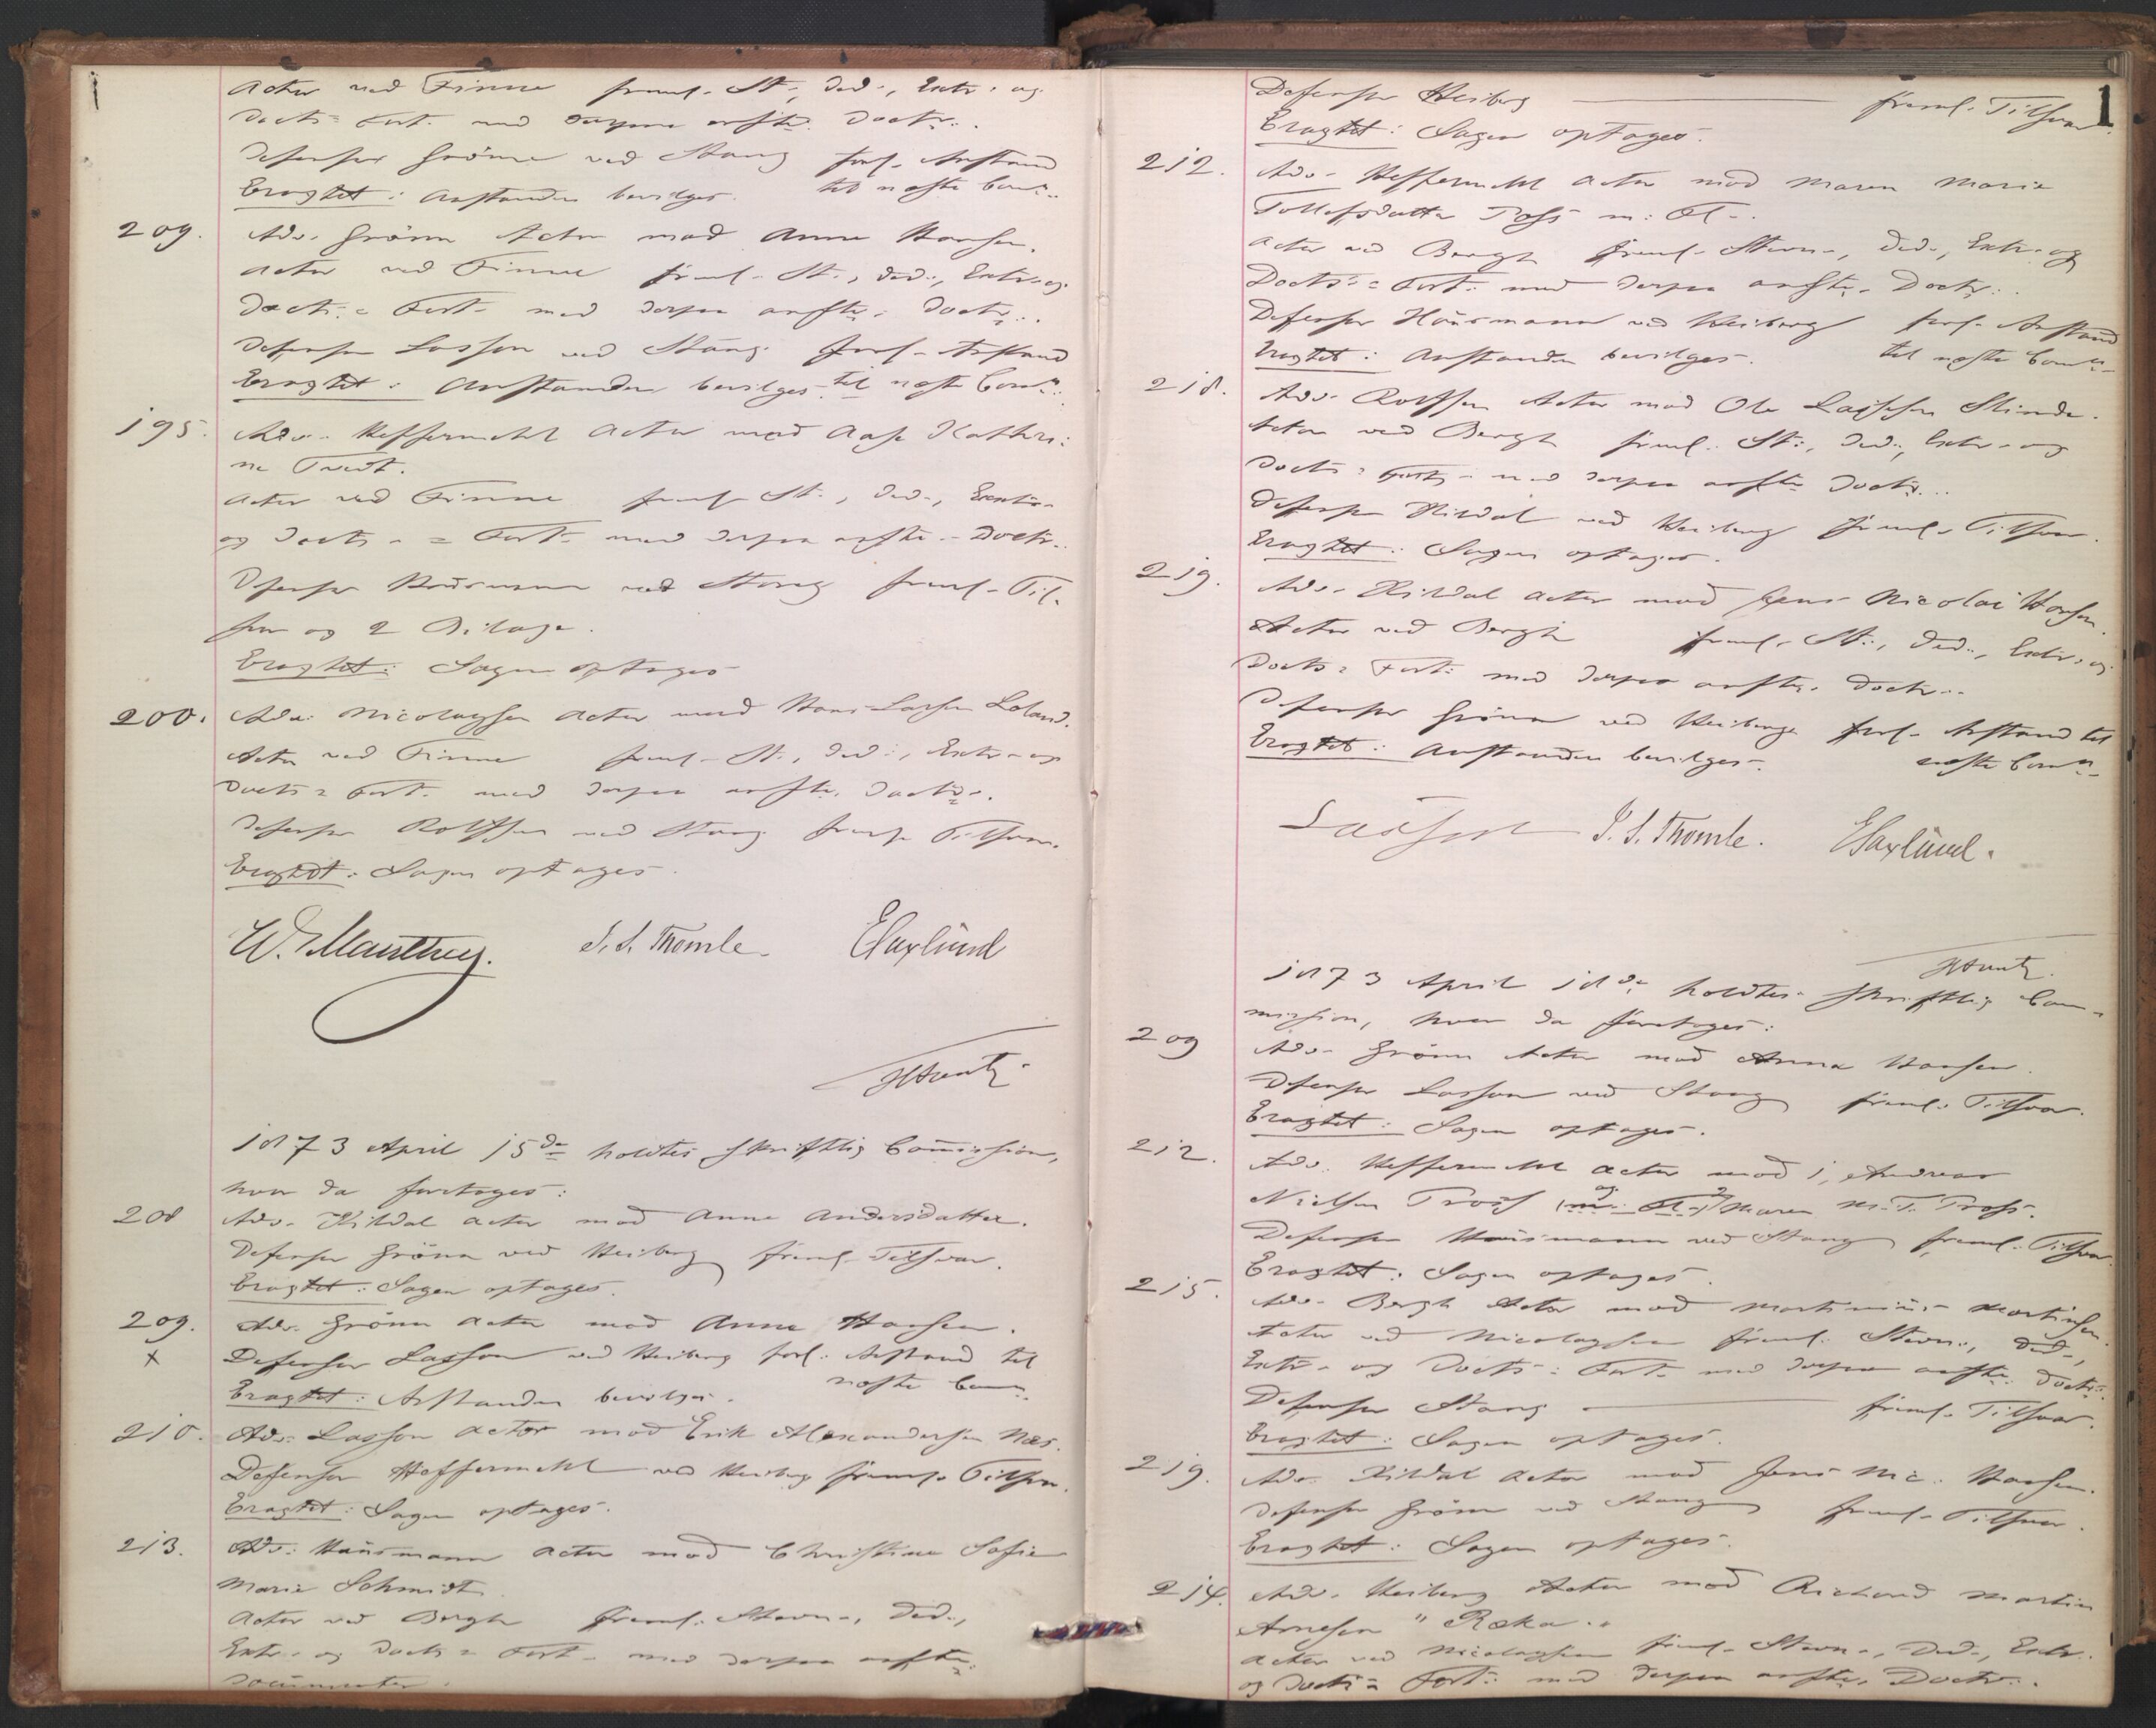 Actor ved Finne freml. St., Ded., Extr. og
Docts = Fort. med derpaa anførte Doctr.
Defensor Grönn ved Stang forl. Anstand
Eragtet: Anstanden bevilges. til næste Comm.
209. Adv. Grönn Actor mod Anne Hansen.
Actor ved Finne freml. St., Ded., Extr. og
Docts = Fort. med derpaa anførte Doctr.
Defensor Lasson ved Stang forl. Anstand
Eragtet: Anstanden bevilges til næste Comm.
195. Adv. Heffermehl Actor mod Aase Kathri-
ne Tvedt.
Actor ved Finne freml. St., Ded., Extr.
og Docts = Fort. med derpaa anførte Doctr.
Defensor Hausmann ved Stang freml. Til-
svar og 2 Bilage.
Eragtet: Sagen optages
200. Adv. Nicolaysen Actor mod Hans Larsen Loland.
Actor ved Finne freml. St., Ded., Extr. og
Docts = Fort. med derpaa anførte Doctr.
Defensor Rolfsen ved Stang freml. Tilsvar.
Eragtet: Sagen optages.
W. Manthey. J. S. Thomle. E Saxlund
1873 April 15de holdtes skriftlig Commission,
hvor da foretoges:
208 Adv. Kildal Actor mod Anne Andersdatter.
Defensor Grönn ved Heiberg freml. Tilsvar.
Eragtet: Sagen optages.
209. Adv. Grönn Actor mod Anne Hansen.
x Defensor Lasson ved Heiberg forl. Anstand til
Eragtet: Anstanden bevilges. næste Comm.
210. Adv. Lasson Actor mod Erik Alexandersen Næs.
Defensor Heffermehl ved Heiberg freml. Tilsvar.
Eragtet: Sagen optages.
213. Adv. Hausmann Actor mod Christine Sofie
Marie Schmidt.
Actor ved Bergh freml. Stevn., Ded.,
Extr. og Docts = Fort. med derpaa anførte
Documenter.
1
Defensor Heiberg freml. Tilsvar.
Eragtet: Sagen optages.
212. Adv. Heffermehl Actor mod Maren Marie
Tollefsdatter m: Fl.
Actor ved Bergh freml. Stevn., Ded., Extr. og
Docts = Fort. med derpaa anførte Doctr.
Defensor Hausmann ved Heiberg forl. Anstand
Eragtet: Anstanden bevilges. til næste Comm.
218. Adv. Rolfsen Actor mod Ole Slinde.
Actor ved Bergh freml. St., Ded., Extr. og
Docts = Fort. med derpaa anførte Doctr.
Defensor Kildal ved Heiberg freml. Tilsvar.
Eragtet: Sagen optages.
219. Adv. Kildal Actor mod Jens Nicolai Hansen.
Actor ved Bergh freml. St., Ded., Extr. og
Docts = Fort. med derpaa anførte Doctr.
Defensor Grönn ved Heiberg forl. Anstand til
Eragtet: Anstanden bevilges. næste Comm.
J. S. Thomle. E Saxlund.
1873 April 18de holdtes skriftlig Com-
mission, hvor da foretoges:
209 Adv. Grönn Actor mod Anna Hansen.
Defensor Lasson ved Stang freml. Tilsvar.
Eragtet: Sagen optages.
212. Adv. Heffermehl Actor mod 1, Andreas
Nielsen og 2, Maren M. T.
Defensor Hausmann ved Stang freml. Tilsvar.
Eragtet: Sagen optages.
215. Adv. Bergh Actor mod Martinius Martinsen.
Actor ved Nicolaysen freml. Stevn., Ded.,
Extr. og Docts = Fort. med derpaa anførte Doctr.
Defensor Stang freml. Tilsvar.
Eragtet: Sagen optages.
219. Adv. Kildal Actor mod Jens Nic. Hansen.
Defensor Grönn ved Stang freml. Tilsvar.
Eragtet: Sagen optages.
214. Adv. Heiberg Actor mod Richard Martin
Arnesen "Ræka".
Actor ved Nicolaysen freml. Stevn., Ded., Extr.
og Docts = Fort. med derpaa anførte Doctr.